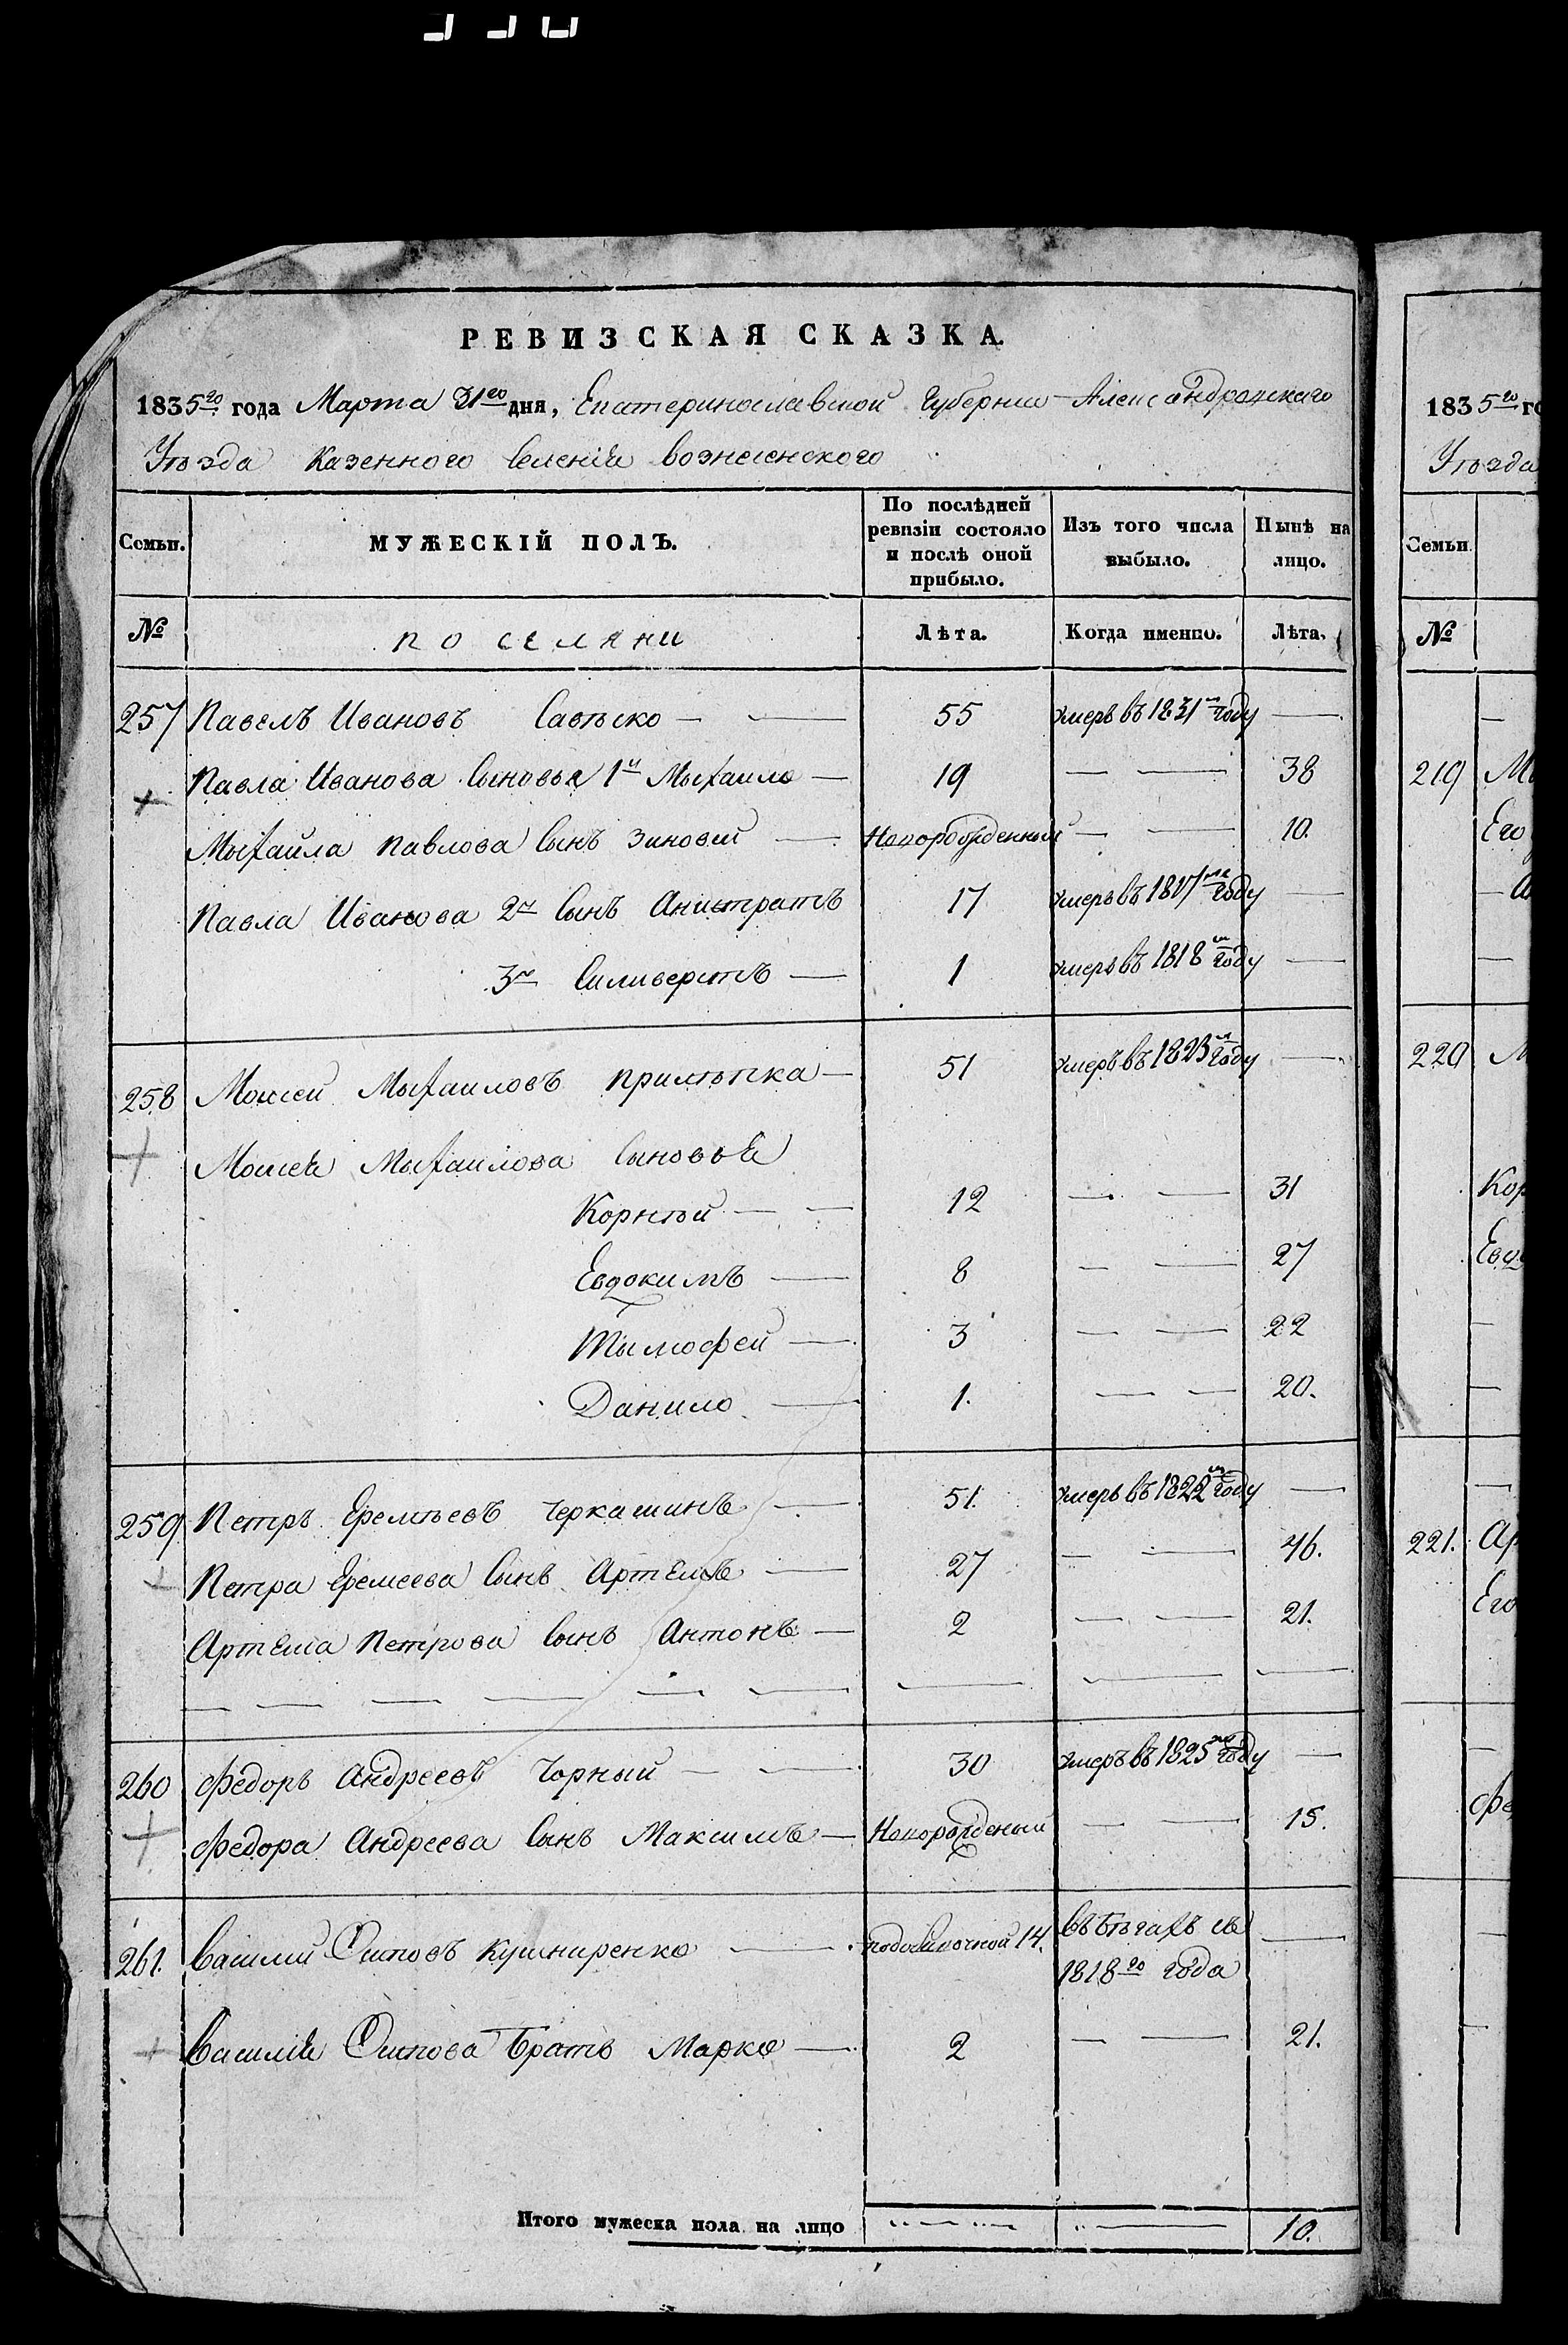 РЕВИЗСКАЯ СКАЗКА.
1835го года Марта 31го дня, Екатеринославской Губернии Александровскаго
Уѣзда Казенного Селенiя Вознесенского
Семьи. МУЖЕСКІЙ ПОЛЪ. По послѣдней ревизіи состояло и послѣ оной прибыло. Изъ того числа выбыло. Нынѣ на лицо.
№ поселяни Лѣта. Когда именно. Лѣта.
257 Павелъ Ивановъ 55 умеръ въ 1831м году
Павла Иванова Сыновья 1й Мыхаило 19 38
Мыхаила Павлова Сынъ Зиновей Новорожденный 10.
Павла Иванова 2й Сынъ Анистратъ 17 умеръ въ 1817м году
3й Силиверстъ 1 умеръ въ 1818м году
258 Моисей Мыхаиловъ Прилѣпка 51 умеръ въ 1823м году
Моисея Мыхаилова Сыновья
Корнѣй 12 31
Евдокимъ 8 27
Тымофей 3 22
Данило 1. 20.
259 Петръ Еремѣевъ Черкашинъ 51. умеръ въ 1822м году
Петра Еремеева Сынъ Артемъ 27 46.
Артема Петрова Сынъ Антонъ 2 21.
260 Федоръ Андреевъ Чорный 30 умеръ въ 1825м году
Федора Андреева Сынъ Максимъ Новорожденый 15.
261. Василий Осиповъ Кушниренко 14. въ бѣгахъ съ
1818го года
Василия Осипова Братъ Марко 2 21.
Итого мужеска пола на лицо 10.
1835го го
Уѣзда
Семьи
№
219
Его
220
Кор
Евд
221. Ар
Его
Фе